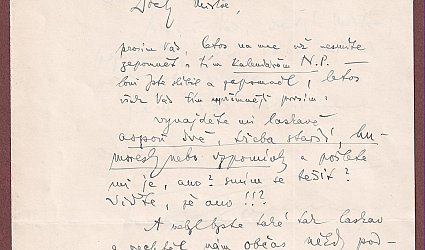 Drahý mistře,
prosím Vás, letos na mne už nesmíte
zapomnět s tím Kalendářem N.P. –
loni jste slíbil a zapomněl, letos
však Vás tím upřímněji prosím:
vynajděte mi laskavě
aspoň dvě, třeba starší, hu-
moresky nebo vzpomínky a pošlete
mi je, ano? Smím se těšit?
Viďte, že ano!!!?
A nebyl byste také tak laskav
a nechtěl nám občas něco pod-